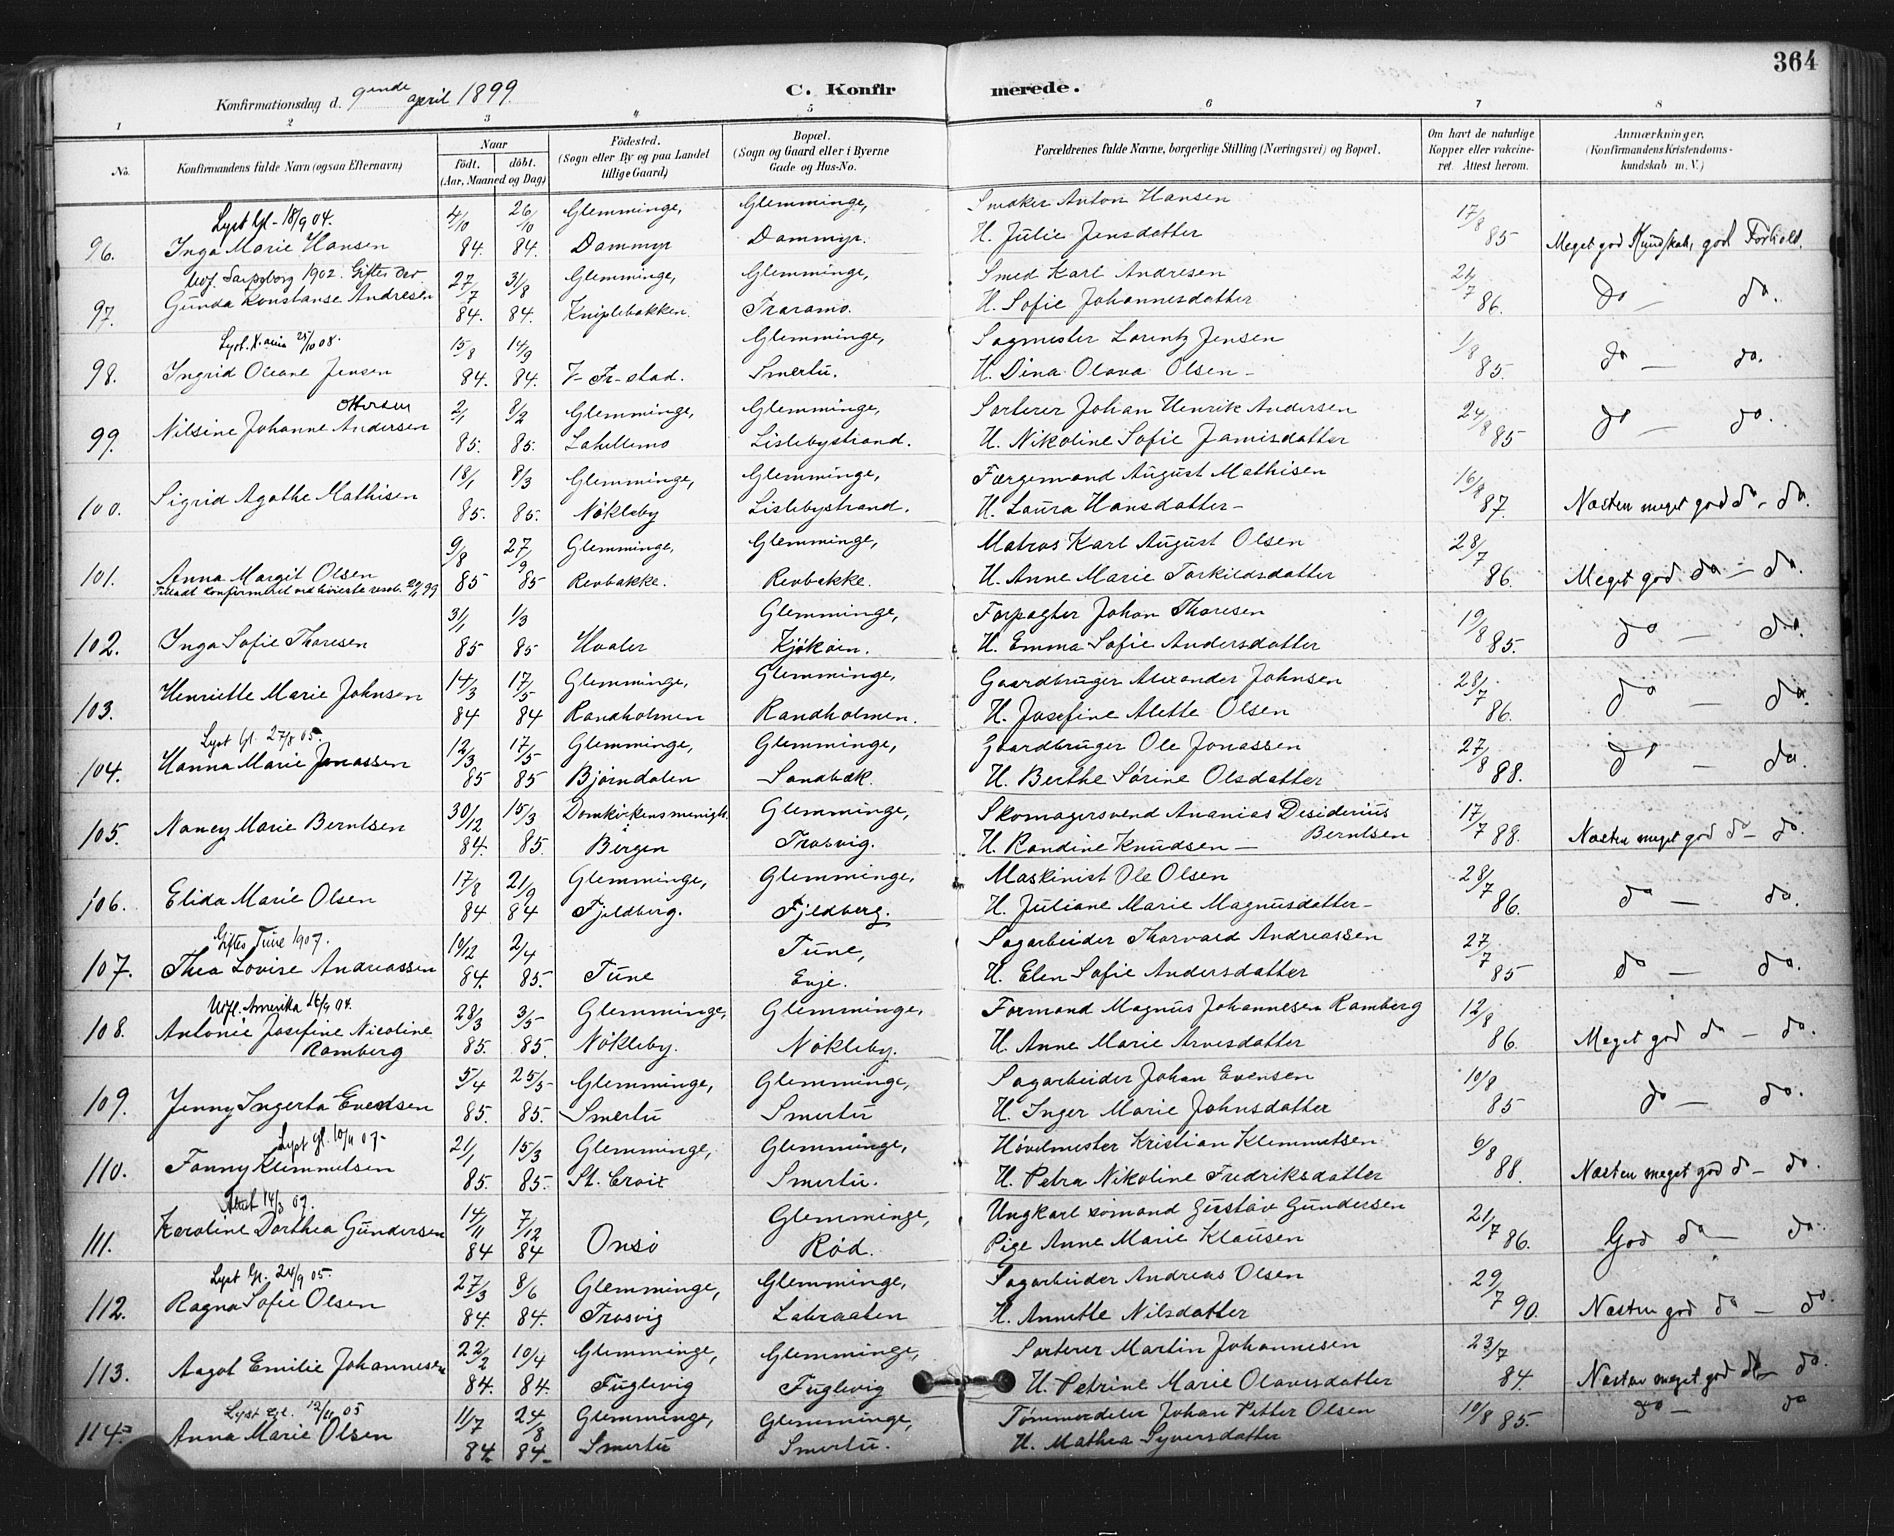 364
Konfirmationsdag d. 9ende april 1899.
C. Konfirmerede.
1 2 3 4 5 6 7 8
No. Konfirmandens fulde Navn (ogsaa Efternavn) Naar født. døbt. (Aar, Maaned og Dag) Fødested. (Sogn eller By og paa Landet tillige Gaard) Bopæl. (Sogn og Gaard eller i Byerne Gade og Hus-No. Forældrenes fulde Navne, borgerlige Stilling (Næringsvei) og Bopæl. Om havt de naturlige Kopper eller vakcineret. Attest herom. Anmærkninger. (Konfirmandens Kristendomskundskab m. V.)
Lyst Gl. 18/9 04. 4/10 26/10 Glemminge, Glemminge, Smøker Anton Hansen 17/8
96. Inga Marie Hansen 84. 84. Dammyr Dammyr. H. Julie Jensdatter 85 Meget god Kundskab, god Forhold.
Sarpsborg 1902. Giftes 27/7 31/8 Glemminge, Glemminge, Smed Karl Andresen 21/7
97. Gunda Konstanse Andresen 84. 84. Kniplebakken. Traramo. H. Sofie Johannesdatter 86. do — do.
Lyst. X.ania 25/10 08. 15/8 14/9 Glemminge, Sagmester Lorentz Jensen 1/8
98. Ingrid Oleane Jensen 84. 84. V-Fr-stad. Smertu. H. Dina Olava Olsen - 85. do — do.
Ottersen 2/1 8/2 Glemminge, Glemminge, Sorterer Johan Henrik Andersen 24/8
99. Nilsine Johanne Andersen 85. 85. Lahellemo Lislebystrand. H. Nikoline Sofie Jamisdatter 85 do — do.
18/1 8/3 Glemminge, Glemminge, Færgemand August Mathisen 16/8
100. Sigrid Agathe Mathisen 85. 85. Nökleby Lislebystrand. H. Laura Hansdatter - 87. Næsten meget god do - do.
9/8 27/9 Glemminge, Glemminge, Matros Karl August Olsen 28/7
101. Anna Margit Olsen 85 85 Revbakke. Revbakke. H. Anne Marie Torkildsdatter 86. Meget god do - do.
Tilladt konfirmeret ved höieste resol.
31/1 1/3 Glemminge, Forpagter Johan Thoresen 19/8
102. Inga Sofie Thoresen 85 85 Hvaler Kjökøin. H. Emma Sofie Andersdatter 85. do — do.
14/3 17/5 Glemminge, Glemminge, Gaardbruger Alexander Johnsen 28/7
103. Henriette Marie Johnsen 84 84 Randholmen Randholmen. H. Josefine Alette Olsen 86. do — do.
Lyst Gl. 27/8 05. 12/3 17/5 Glemminge, Glemminge, Gaardbruger Ole Jonassen 27/8
104. Hanna Marie Jonassen 85 85 Bjørndalen Sandbæk. H. Berthe Sörine Olsdatter 88. do — do.
30/12 15/3 Domkirkens menigh. Glemminge, Skomagersvend Ananias Desiderius Berntsen 17/7
105. Nancy Marie Berntsen 84. 85. Bergen Trosvig. H. Randine Knudsen — 88. Næsten meget god do — do.
17/8 21/9 Glemminge, Glemminge, Maskinist Ole Olsen 28/7
106. Elida Marie Olsen 84 84 Fjeldberg. Fjeldberg. H. Juliane Marie Magnusdatter - 86. do — do.
Giftes Tune 1907. 10/12 2/4 Tune, Sagarbeider Thorvald Andreassen 27/7
107. Thea Lovise Andreassen 84. 85. Tune Evje. H. Elen Sofie Andersdatter 85 do — do.
Udfl. Amerika 16/9 04. 28/3 3/5 Glemminge, Glemminge, Formand Magnus Johannesen Ramberg 12/8
108. Antonie Josefine Nicoline Ramberg 85. 85. Nökleby. Nökleby. H. Anne Marie Arvesdatter 86. Meget god do — do.
5/4 25/5 Glemminge, Glemminge, Sagarbeider Johan Evensen 10/8
109. Jenny Ingerta Evensen 85. 85. Smertu Smertu H. Inger Marie Johnsdatter 85 do — do.
Lyst gl. 10/11 07- 21/1 15/3 Glemminge, Glemminge, Høvelmester Kristian Klemmetsen 6/8
110. Fanny Klemmetsen 85. 85. St. Croix Smertu. H. Petra Nikoline Fredriksdatter 88. Næsten meget god do — do.
Attest 14/3 07. 14/11 7/12 Glemminge, Ungkarl sømand Gustav Gundersen 21/7
111. Karoline Dorthea Gundersen 84 84 Onsö Rød. Pige Anne Marie Klausen 86. God do — do.
Lyst Gl. 24/9 05. 27/3 8/6 Glemminge, Glemminge, Sagarbeider Andreas Olsen 29/7
112. Ragna Sofie Olsen 84. 84. Trosvig Labraaten H. Annette Nilsdatter 90. Næsten god do — do.
22/2 10/4 Glemminge, Glemminge, Sorterer Martin Johannesen 23/7
113. Aagot Emilie Johannesen 84. 84. Fuglevig Fuglevig H. Petrine Marie Olavesdatter 84. Næsten meget god do — do.
Lyst Gl. 12/11 05 11/7 24/8 Glemminge, Glemminge, Tømmerdeler Johan Petter Olsen 10/8 85. do — do
114. Anna Marie Olsen 84. 84. Smertu Smertu. H. Mathea Syversdatter